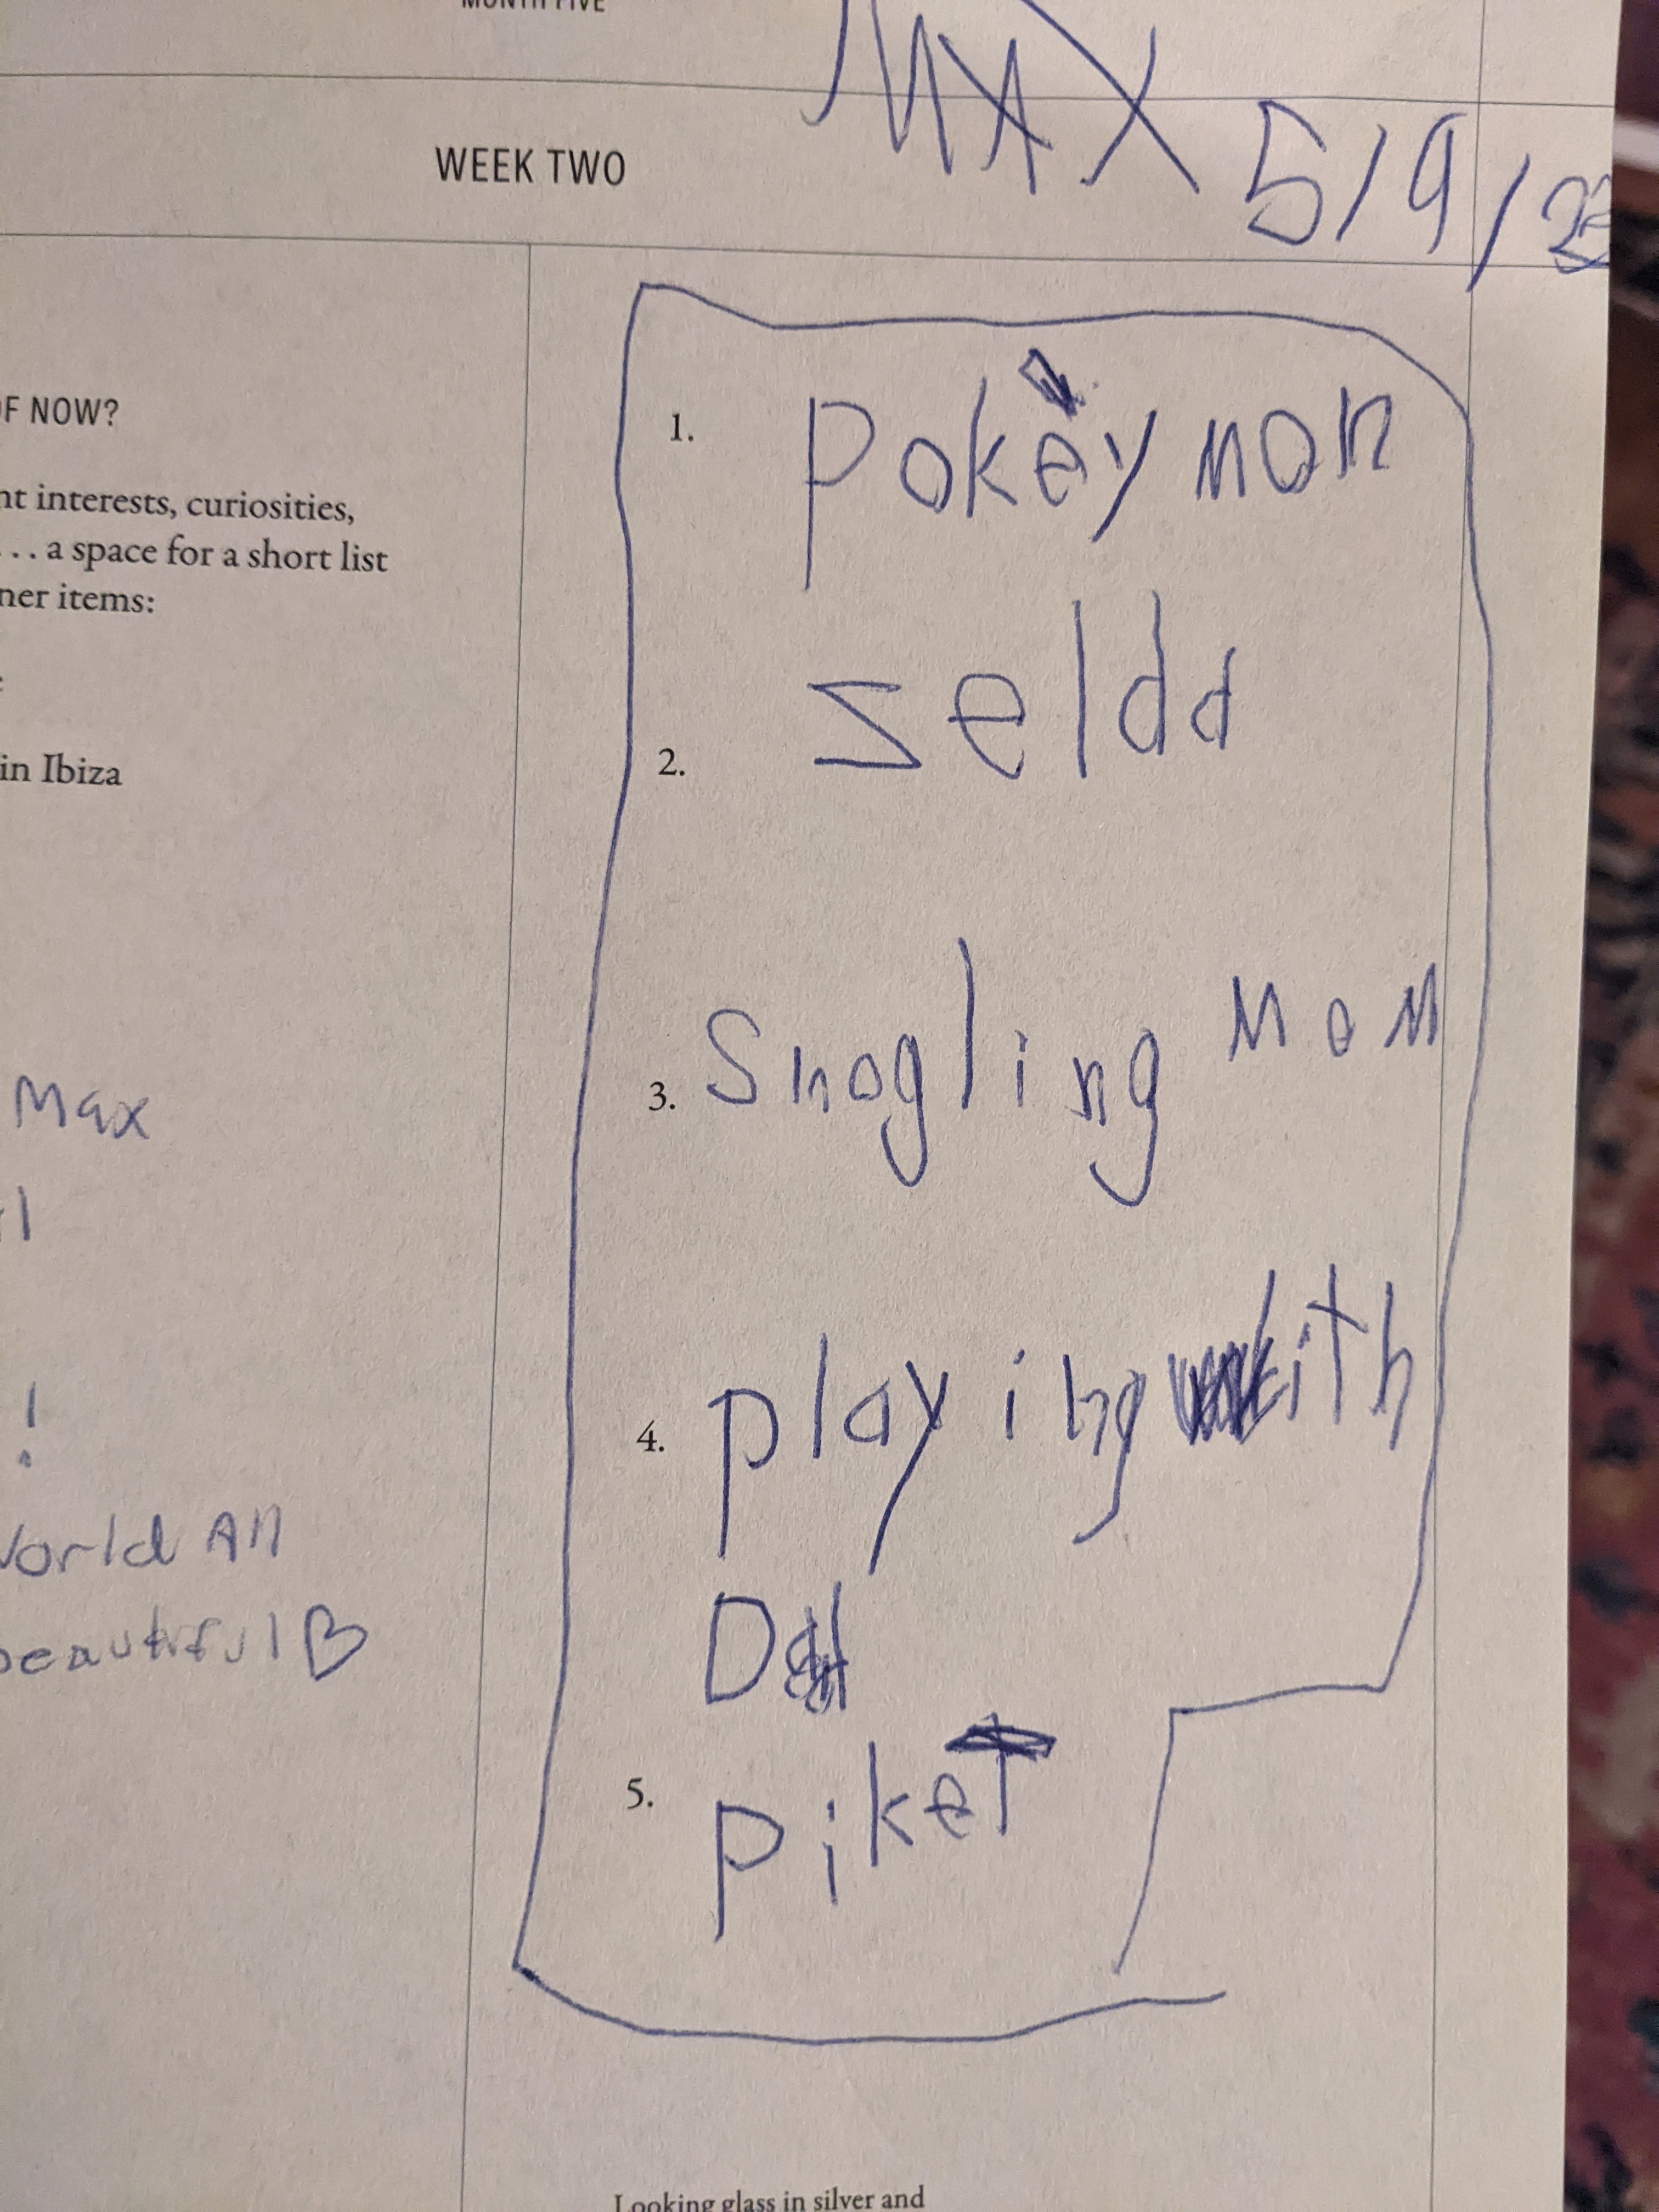 MONTH FIVE
MAX 5/9/
WEEK TWO
OF NOW?
nt interests, curiosities,
... a space for a short list
ner items:
in Ibiza
Max
!
World All
beautiful
1. Pokéymon
2. zelda
3. Snogling Mom
4. playing with
Dad
5. piket
Looking glass in silver and